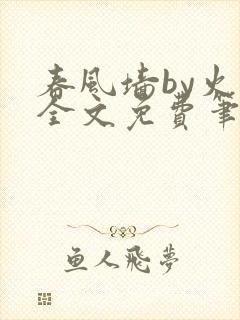 春风墙by火
全文免費筆
鱼人飛夢